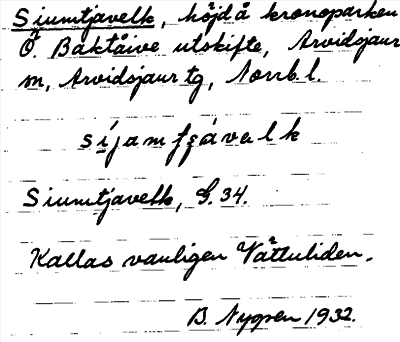 Siumtjavelk, höjd å kronoparken
Ö. Baktåive utskifte, Arvidsjaur
m, Arvidsjaur tg, Norrb. l.
Siumtjavelk, G. 34.
Kallas vanligen Vättuliden.
B. Nygren 1932.